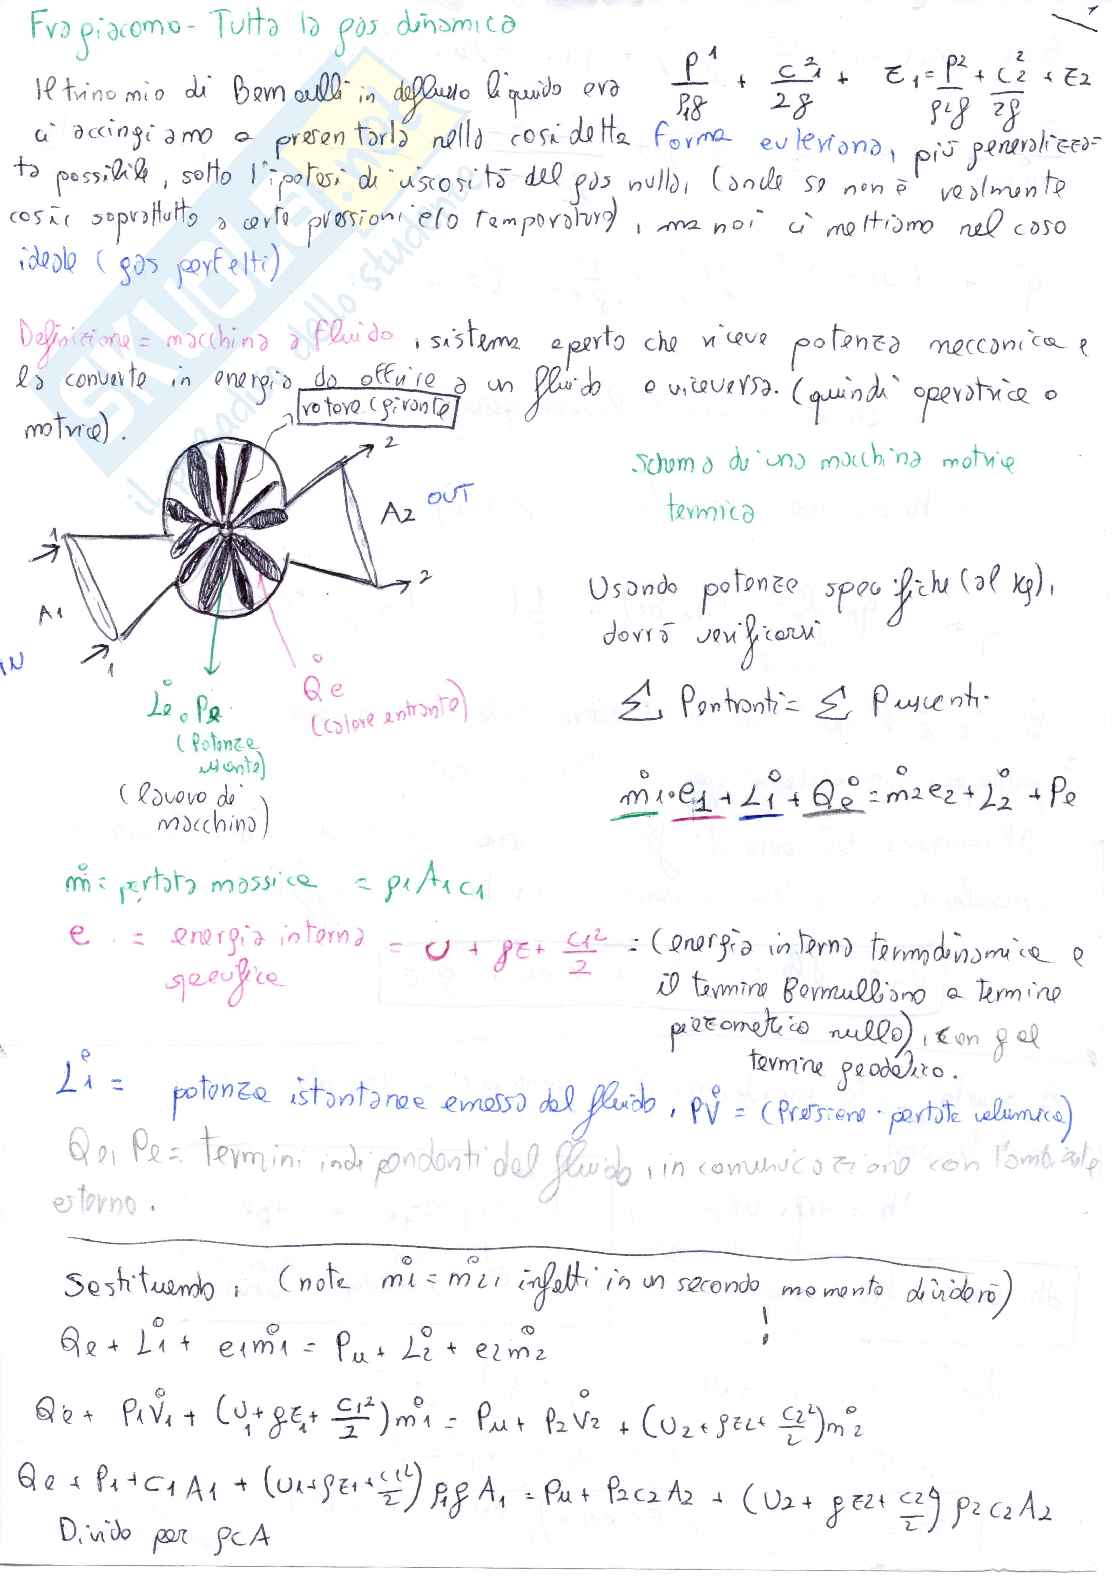 Fragiacomo - Tutta la gas dinamica
1
Il trinomio di Bernoulli in deflusso liquido era P1/ρ1g + c1²/2g + z1 = P2/ρ2g + c2²/2g + z2
ci accingiamo a presentarla nella cosidetta forma euleriana, più generalizza-
ta possibile, sotto l'ipotesi di viscosità del gas nulla, (anche se non è realmente
così soprattutto a certe pressioni e/o temperature), ma noi ci mettiamo nel caso
ideale (gas perfetti)
Definizione = macchina a fluido, sistema aperto che riceve potenza meccanica e
la converte in energia da offrire a un fluido o viceversa. (quindi operatrice o
motrice).
rotore (girante)
Schema di una macchina motrice
termica
1
2
A2 OUT
2
A1
1
IN
Usando potenze specifiche (al kg),
dovrà verificarsi
Σ Pentranti = Σ Puscenti.
L̊e o Pe
(Potenza
uscente)
(lavoro di
macchina)
Q̊e
(calore entrante)
m̊1·e1 + L̊1 + Q̊e = m̊2e2 + L̊2 + Pe
m̊ = portata massica = ρ1A1c1
e = energia interna specifica = U + gz + c1²/2 = (energia interna termodinamica e
il termine Bernulliano a termine
piezometrico nullo), con g al
termine geodetico.
L̊1 = potenza istantanea emessa dal fluido, PV̊ = (Pressione · portata volumica)
Qe, Pe = termini indipendenti del fluido, in comunicazione con l'ambiente
esterno.
Sostituendo, (note m̊1 = m̊2, infatti in un secondo momento dividerò)
!
Qe + L̊1 + e1m̊1 = Pu + L̊2 + e2m̊2
Qe + P1V̊1 + (U1 + gz1 + c1²/2)m̊1 = Pu + P2V̊2 + (U2 + gz2 + c2²/2)m̊2
Qe + P1 + c1A1 + (U1 + gz1 + c1²/2)ρ1gA1 = Pu + P2c2A2 + (U2 + gz2 + c2²/2)ρ2c2A2
Divido per ρcA
SKUOLA.net
il paradiso dello studente